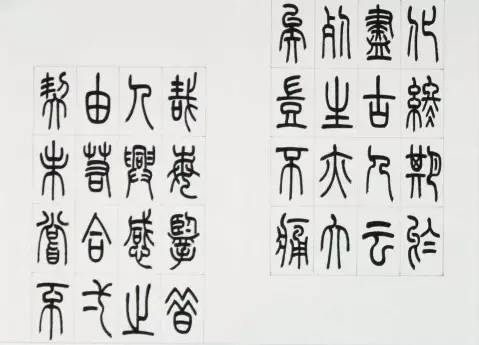 化終期於
盡古人云
死生亦大
矣豈不痛
哉每攬昔
人興感之
由若合一
契未嘗不